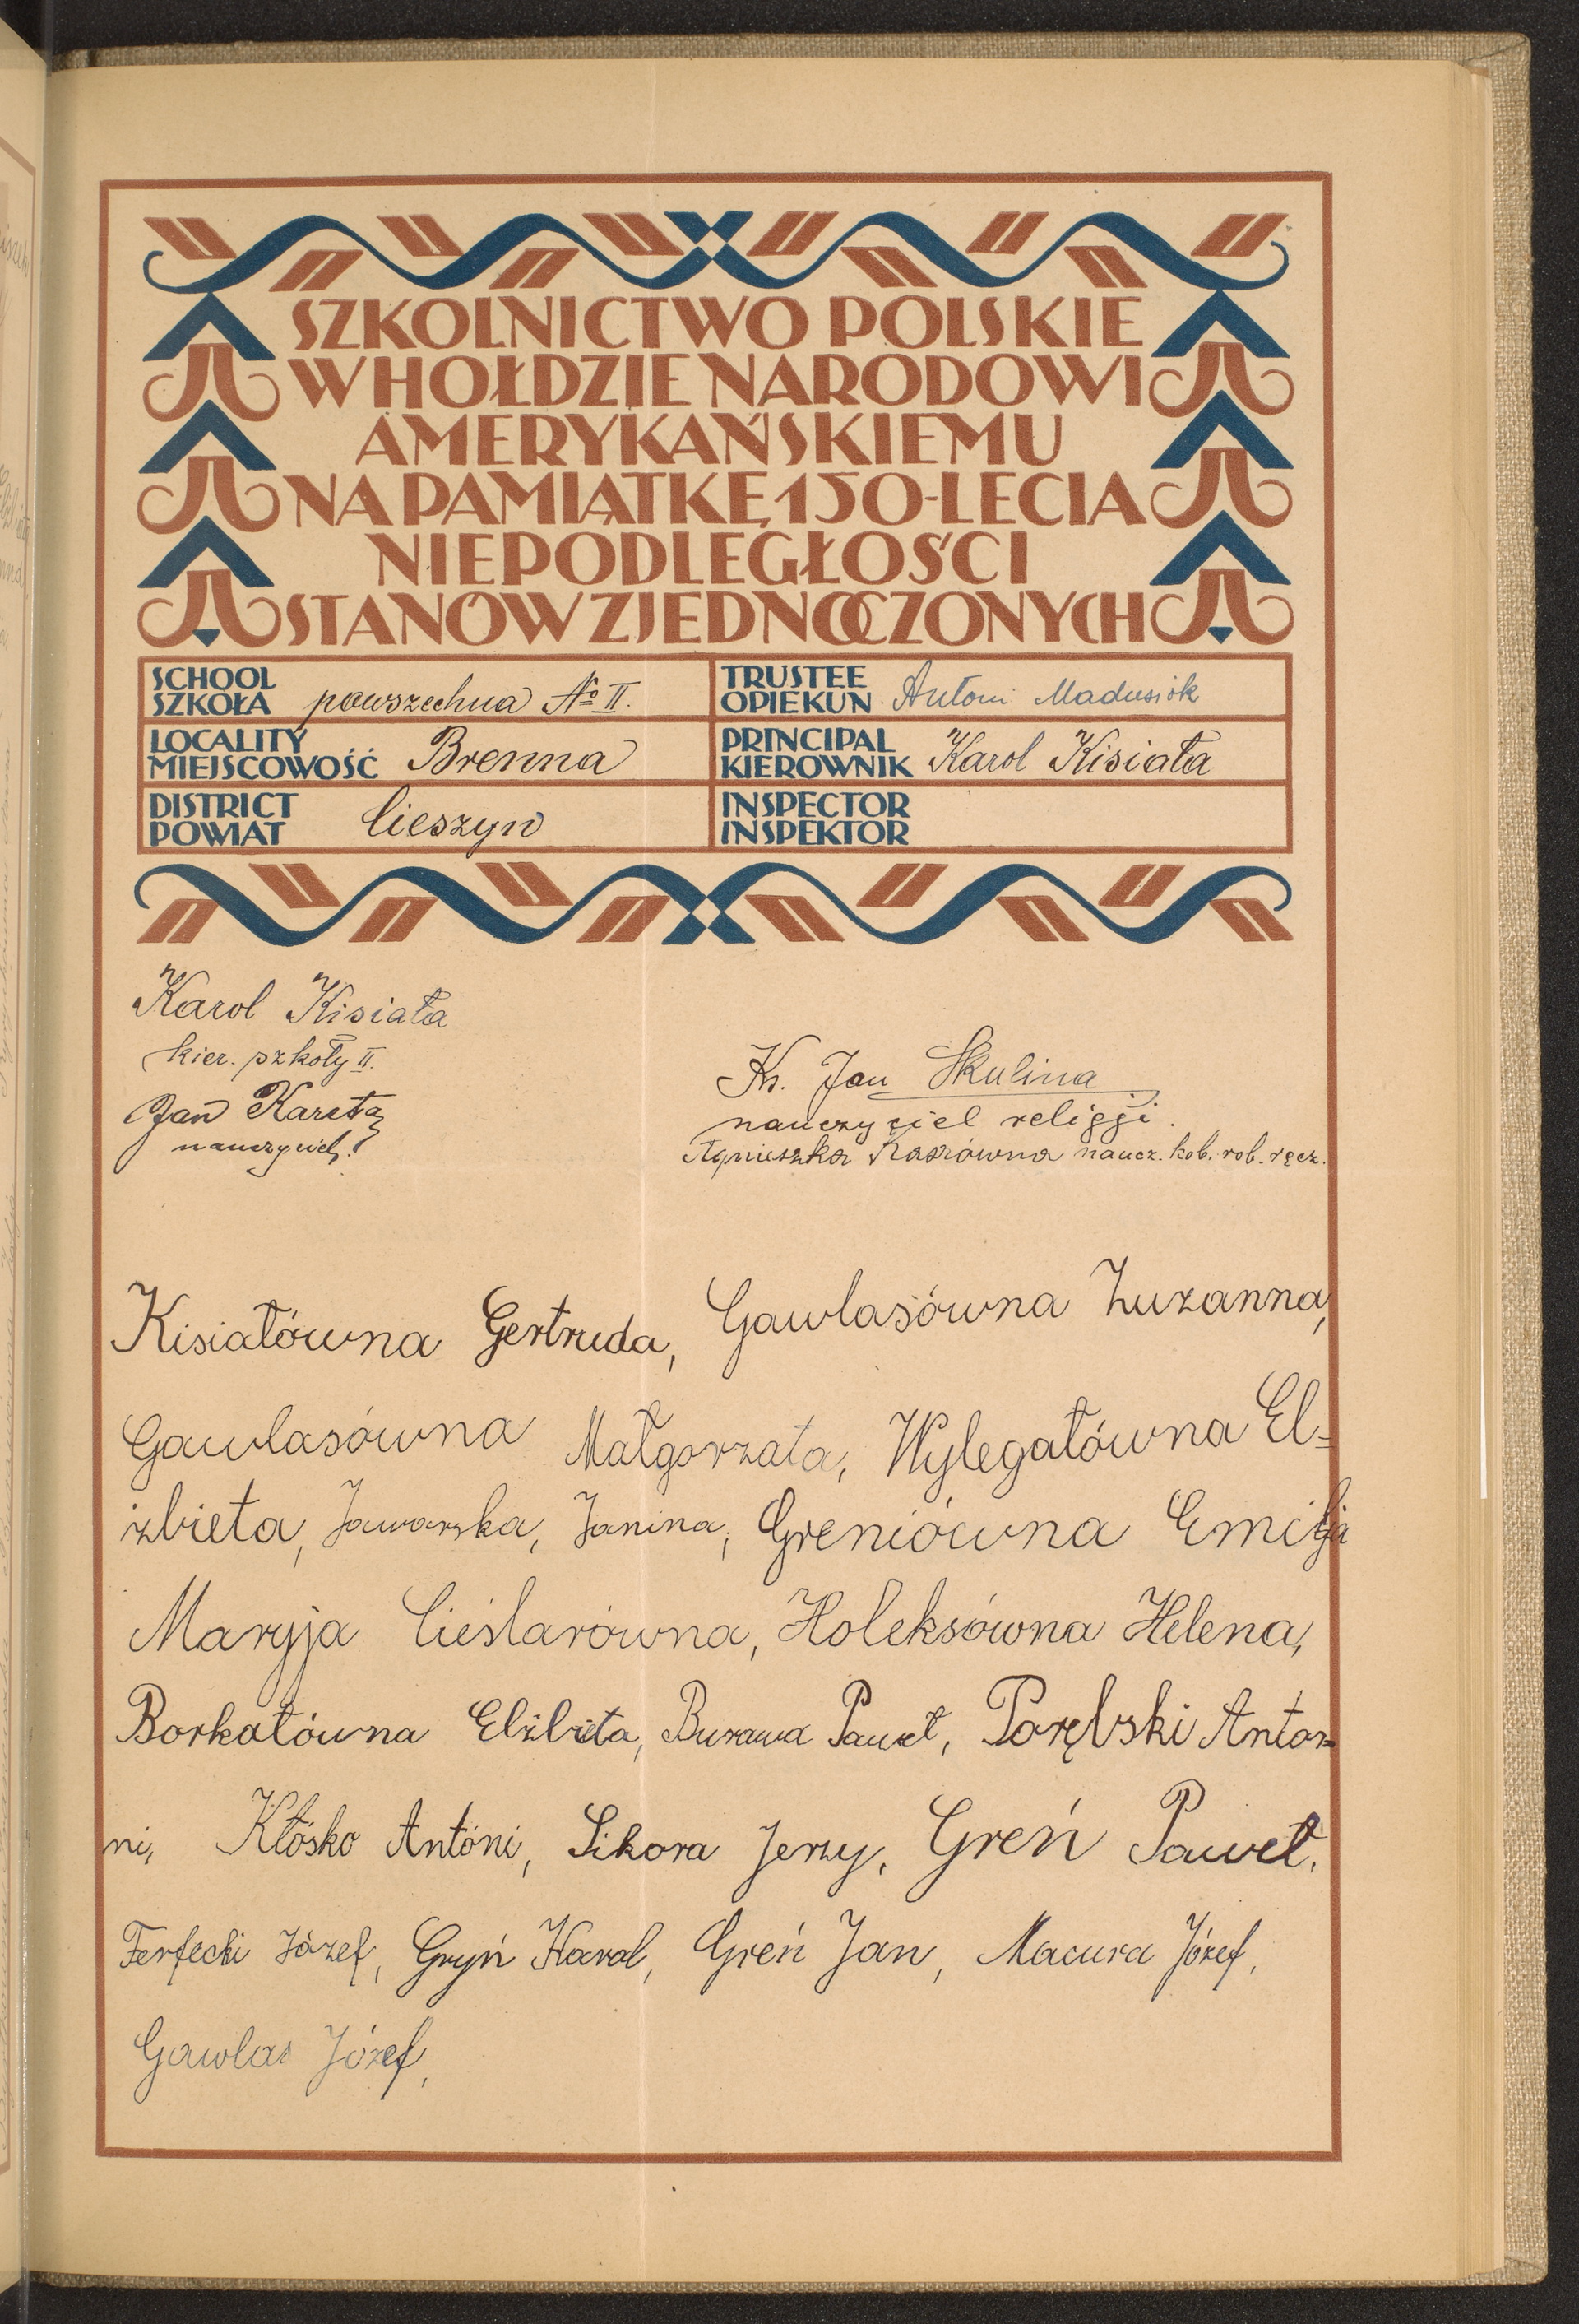 SZKOLNICTWO POLSKIE
W HOŁDZIE NARODOWI
AMERYKAŃSKIEMU
NA PAMIĄTKĘ 150-LECIA
NIEPODLEGŁOŚCI
STANÓW ZJEDNOCZONYCH
SCHOOL
SZKOŁA powszechna No II.
TRUSTEE
OPIEKUN Antoni Madusiok
LOCALITY
MIEJSCOWOŚĆ Brenna
PRINCIPAL
KIEROWNIK Karol Kisiała
DISTRICT
POWIAT Cieszyn
INSPECTOR
INSPEKTOR
Karol Kisiała
kier. szkoły II.
Jan Kareta
nauczyciel.
Ks. Jan Skulina
nauczyciel religji.
Agnieszka naucz. kob. rob. ręcz.
Kisiałówna Gertruda, Gawlasówna Zuzanna,
Gawlasówna Małgorzata, Wylegałówna El=
żbieta, Jaworska, Janina, Greniówna Emilja
Maryja Cieślarówna, Holeksówna Helena,
Borkałówna Elżbieta, Burawa Paweł, Porębski Anto=
ni, Kłósko Antóni, Sikora Jerzy, Greń Paweł.
Ferfecki Józef, Gryń Karol, Greń Jan, Macura Józef,
Gawlas Józef,